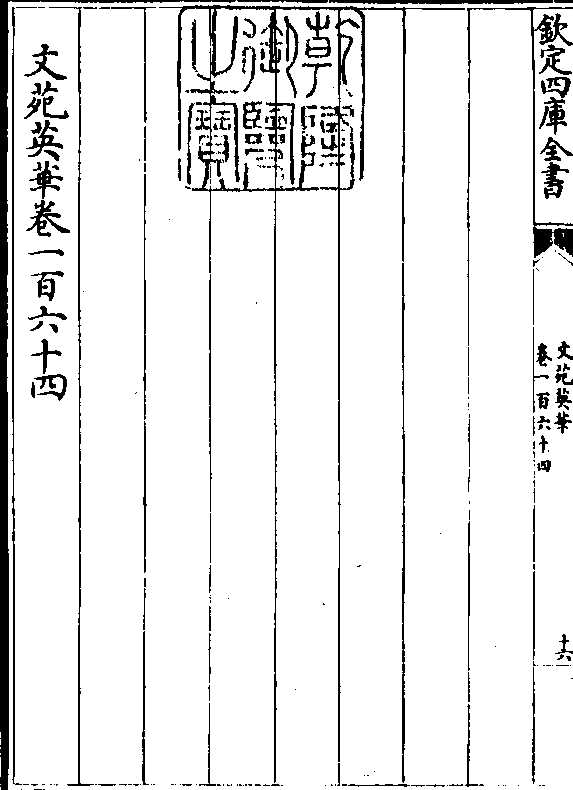 欽定四庫全書
文苑英華
卷一百六十四
十六
乾隆御覽之寶
文苑英華卷一百六十四